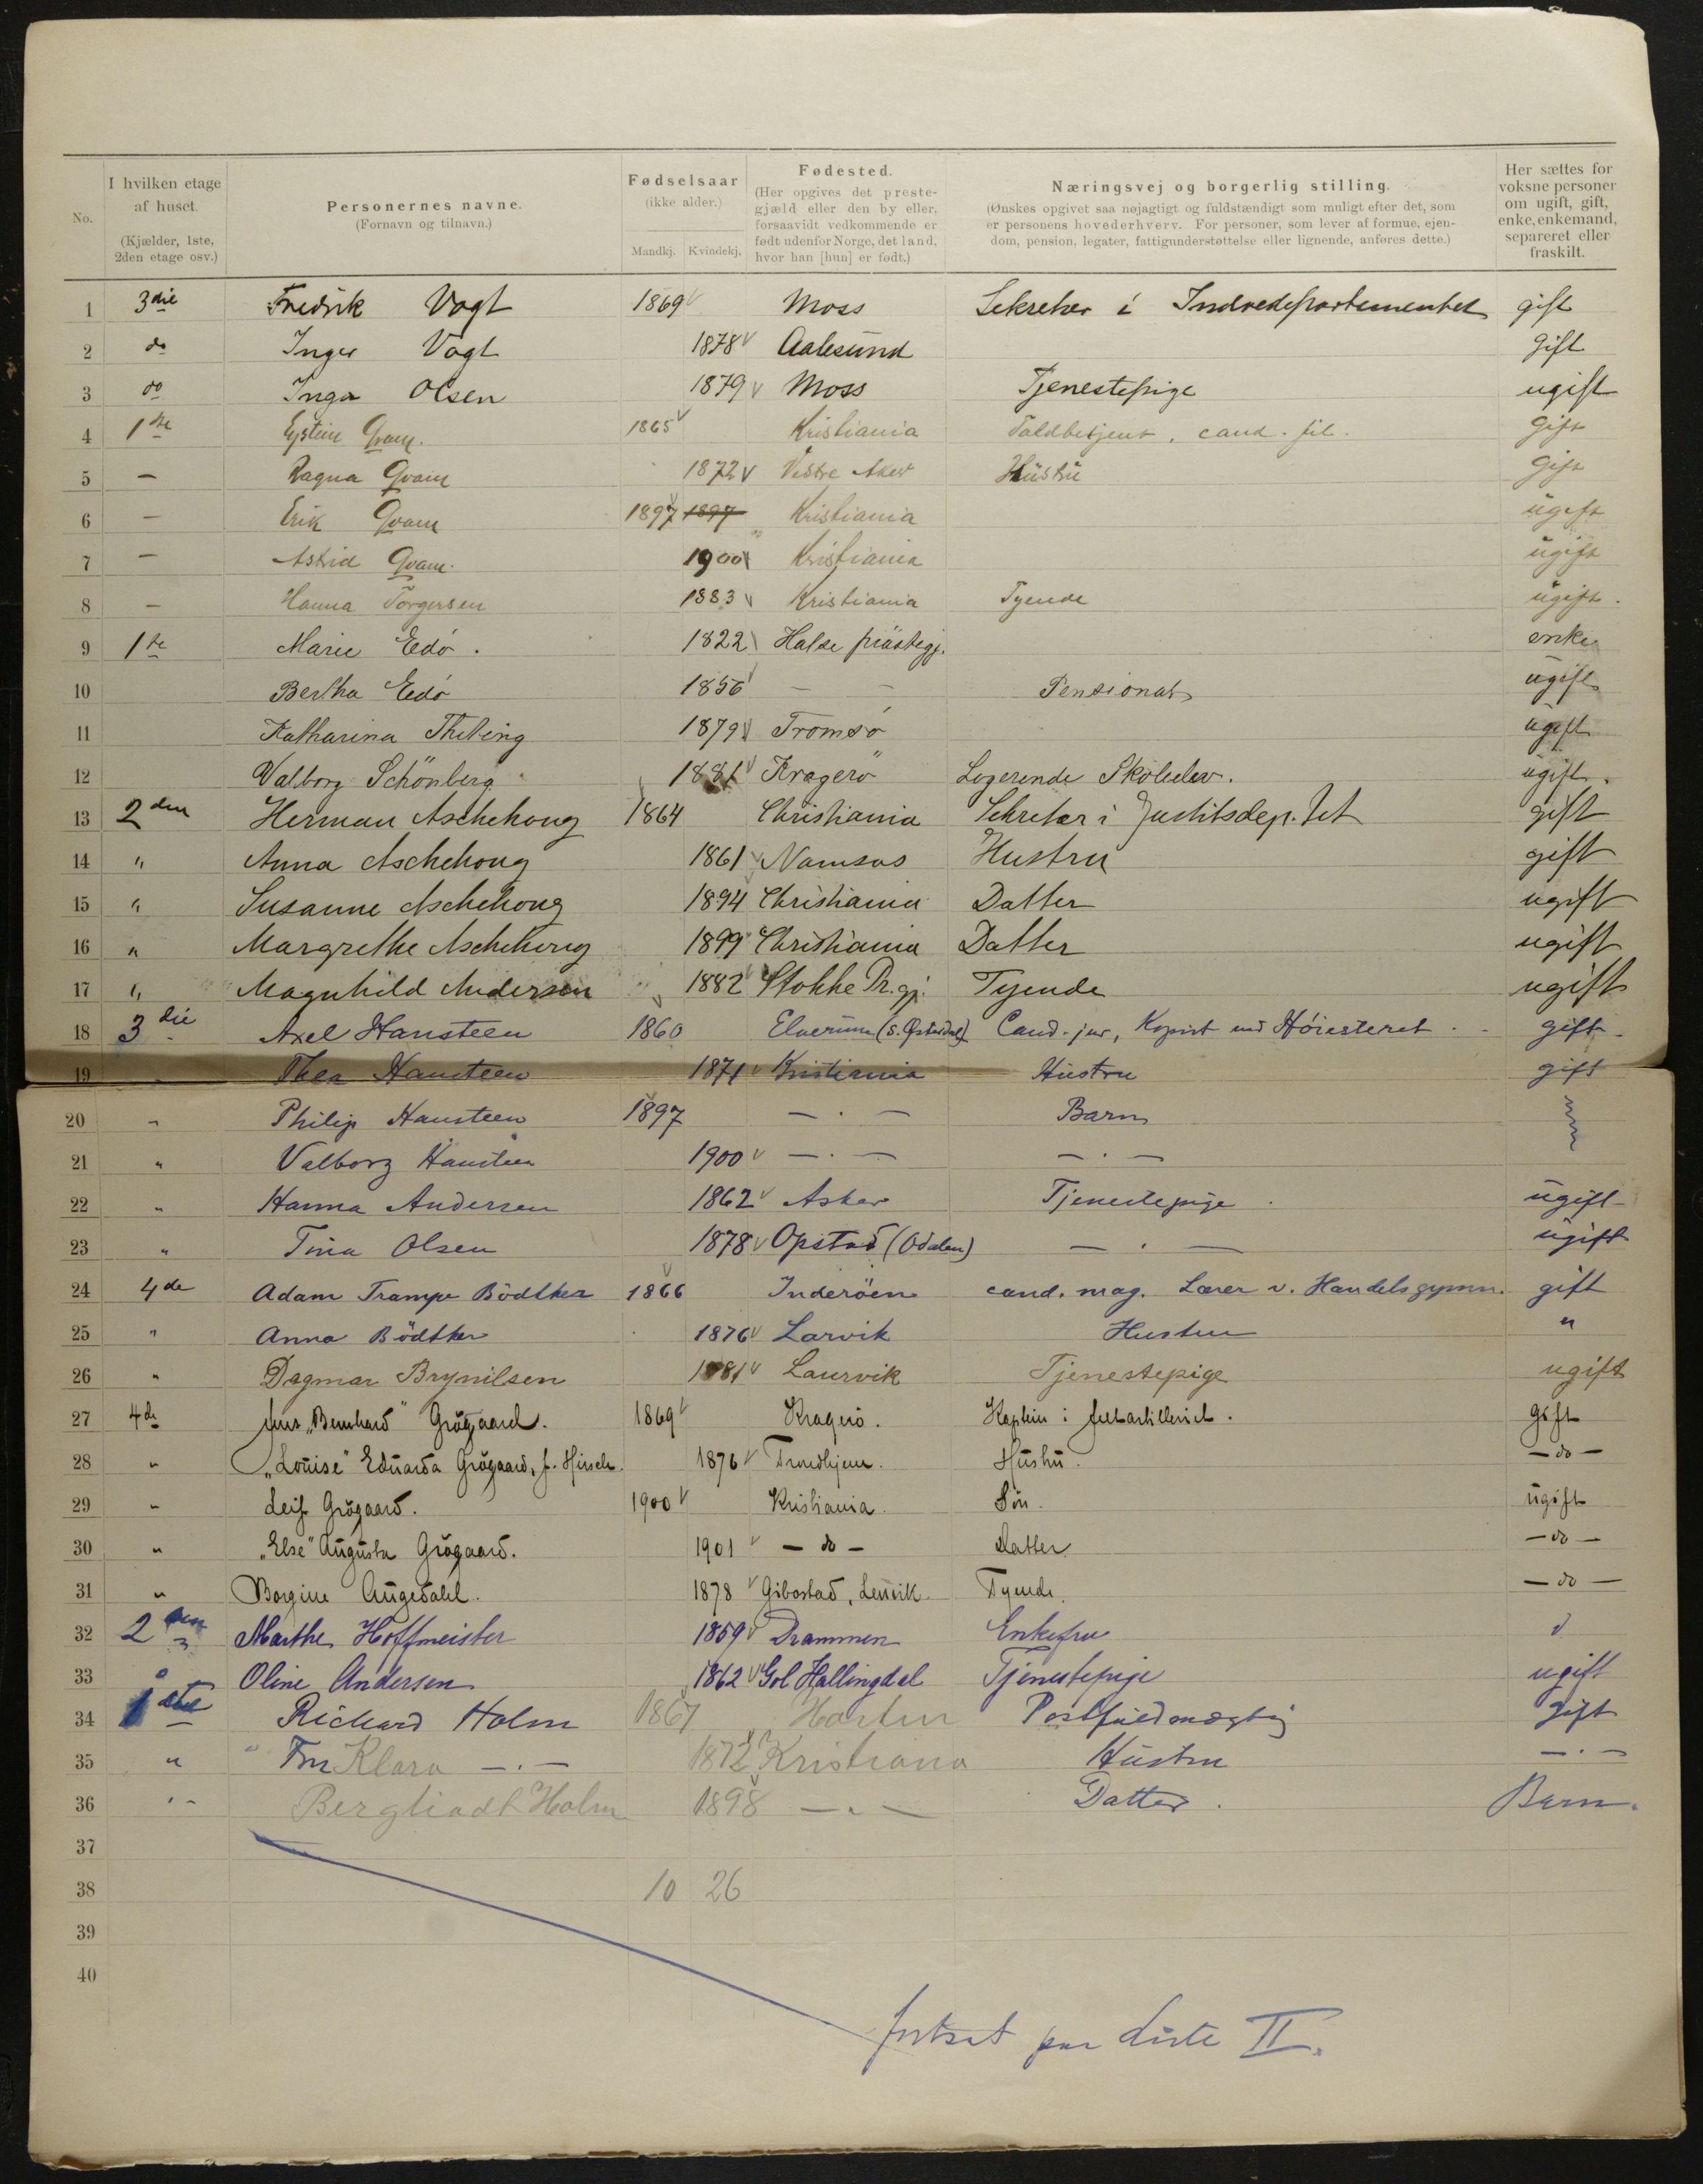 No.
I hvilken etage af huset. (Kjælder, 1ste, 2den etage osv.)
Personernes navne. (Fornavn og tilnavn.)
Fødselsaar (ikke alder.) Mandkj. Kvindekj.
Fødested. (Her opgives det prestegjæld eller den by eller, forsaavidt vedkommende er født udenfor Norge, det land, hvor han [hun] er født.)
Næringsvej og borgerlig stilling. (Ønskes opgivet saa nøjagtigt og fuldstændigt som muligt efter det, som er personens hovederhverv. For personer, som lever af formue, ejendom, pension, legater, fattigunderstøttelse eller lignende, anføres dette.)
Her sættes for voksne personer om ugift, gift, enke, enkemand, separeret eller fraskilt.
1 3die Fredrik Vogt 1869 Moss Sekretær i Indredepartementet gift
2 do Inger Vogt 1878 Aalesund gift
3 do Inga Olsen 1879 Moss Tjenestepige ugift
4 1ste Eystein Qvam. 1865 Kristiania Toldbetjent, cand. fil. gift
5 — Ragna Qvam 1872 Vestre Aker Hustru gift
6 — Erik Qvam 1897 1897 Kristiania ugift
7 — Astrid Qvam. 1900 Kristiania ugift
8 — Hanna Torgersen 1883 Kristiania Tyende ugift.
9 1ste Marie Eedö. 1822 Halse præstegj. enke
10 Bertha Eedö 1856 — — Pensionat ugift
11 Katharina Thebing 1879 Tromsö ugift
12 Valborg Schönberg 1881 Kragerö Logerende Skoleelev. ugift.
13 2den Herman Aschehoug 1864 Christiania Sekretær i Justitsdep.tet gift
14 " Anna Aschehoug 1861 Namsos Hustru gift
15 " Susanne Aschehoug 1894 Christiania Datter ugift
16 " Margrethe Aschehoug 1899 Christiania Datter ugift
17 " Magnhild Andersen 1882 Stokke Pr.gj. Tyende ugift
18 3die Axel Hansteen 1860 Elverum (S. Østerdal) Cand. jur, Kopist ved Höiesteret gift
19 Thea Hansteen 1871 Kristiania Hustru gift
20 " Philip Hansteen 1897 — . — Barn
21 " Valborg Hansteen 1900 — . — — . —
22 " Hanna Andersen 1862 Asker Tjenestepige ugift
23 " Tina Olsen 1878 Opstad (Odalen) — . — ugift
24 4de Adam Trampe Bödtker 1866 Inderöen cand. mag. Lærer v. Handelsgymn. gift
25 " Anna Bödtker 1876 Larvik Hustru "
26 " Dagmar Brynilsen 1881 Laurvik Tjenestepige ugift
27 4de Jens "Bernhard" Grögaard. 1869 Kragerö. Kaptein i feltartilleriet. gift
28 " "Louise" Eduarda Grögaard, f. Hirsch. 1876 Trondhjem. Hustru. — do —
29 " Leif Grögaard. 1900 Kristiania. Sön. ugift
30 " "Else" Augusta Grögaard. 1901 — do — Datter — do —
31 " Borgine Angedahl. 1878 Gibostad, Lenvik. Tyende. — do —
32 2den Marthe Hoffmeister 1859 Drammen Enkefru
33 Oline Andersen 1862 Gol Hallingdal Tjenestepige ugift
34 1ste Richard Holm 1867 Horten Postfuldmægtig gift
35 " Fru Klara — . — 1872 Kristiana Hustru — . —
36 " Bergliodt Holm 1898 — . — Datter. Barn.
37
38 10 26
39
40
fortsat paa Liste II.